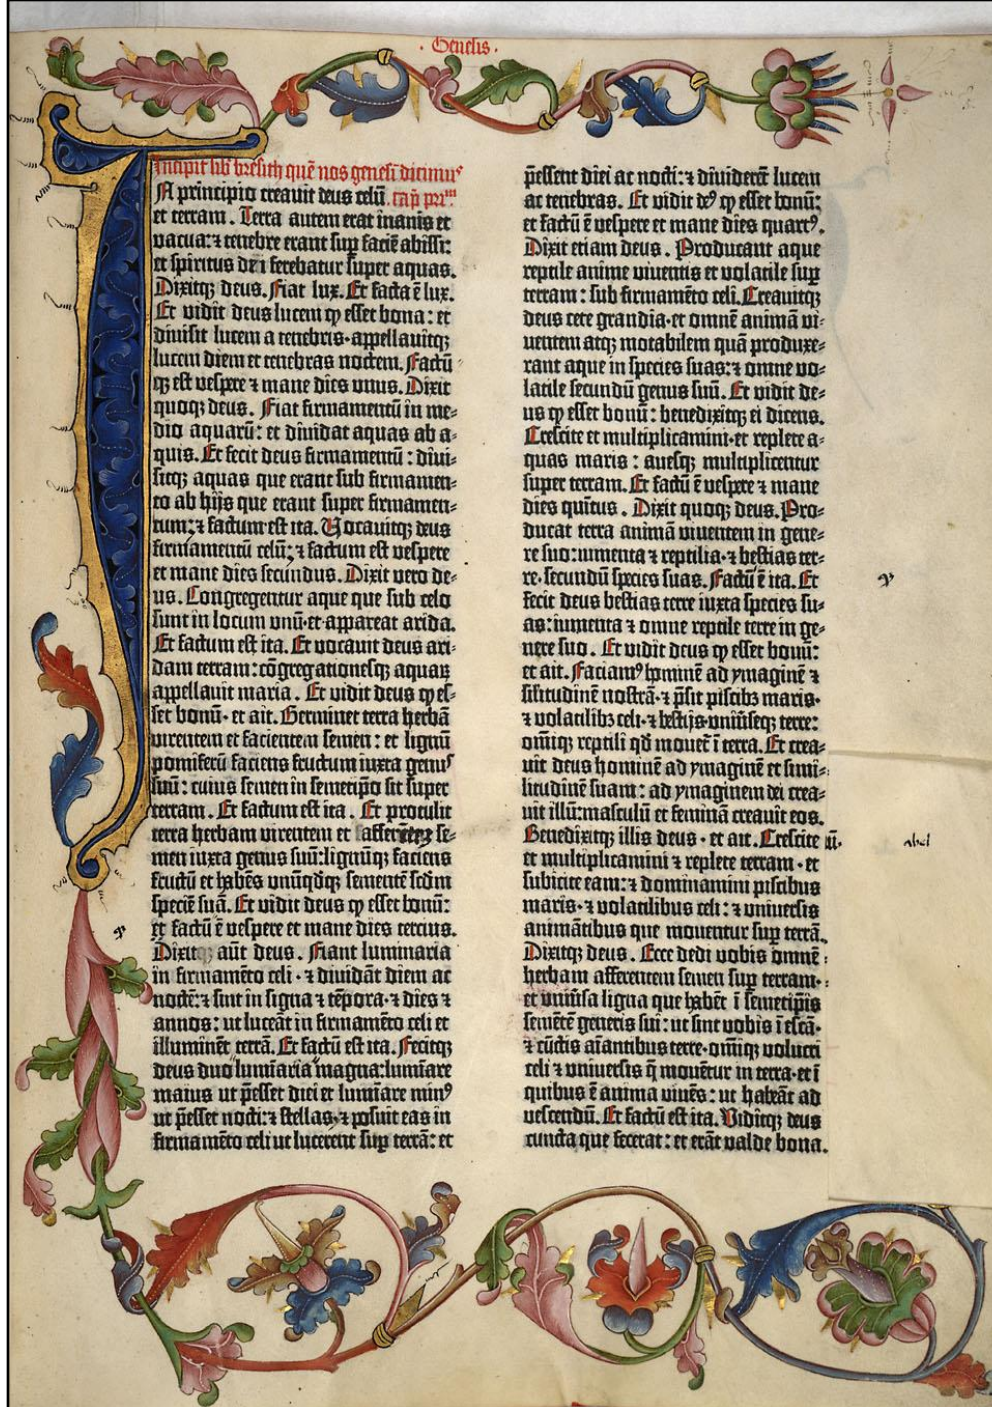 · Genesis ·
Incipit lib̄ bresith quē nos genesi dicimus
In principio creavit deus celū cap̄ pri.m
et terram. Terra autem erat inanis et
vacua: ⁊ tenebre erant sup̄ faciē abissi:
et spiritus dei ferebatur super aquas.
Dixitqꝫ deus. Fiat lux. Et facta ē lux.
Et vidit deus lucem ꝙ esset bona: et
divisit lucem a tenebris· appellavitqꝫ
lucem diem et tenebras noctem. Factū
qꝫ est vespere ⁊ mane dies unus. Dixit
quoqꝫ deus. Fiat firmamentū in me-
dio aquarū: et dividat aquas ab a-
quis. Et fecit deus firmamentū: divi-
sitqꝫ aquas que erant sub firmamen-
to ab hijs que erant super firmamen-
tum: ⁊ factum est ita. Vocavitqꝫ deus
firmamentū celū: ⁊ factum est vespere
et mane dies secundus. Dixit vero de-
us. Congregentur aque que sub celo
sunt in locum unū· et appareat arida.
Et factum est ita. Et vocavit deus ari-
dam terram: cōgregationesqꝫ aquaꝝ
appellavit maria. Et vidit deus ꝙ es-
set bonū· et ait. Germinet terra herbā
virentem et facientem semen: et lignū
pomiferū faciens fructum iuxta genus
suū: cuius semen in semetip̄o sit super
terram. Et factum est ita. Et protulit
terra herbam virentem et se-
men iuxta genus suū: lignūqꝫ faciens
fructū et habēs unūqdqꝫ sementē scdm
speciē suā. Et vidit deus ꝙ esset bonū:
et factū ē vespere et mane dies tercius.
Dixit aūt deus. Fiant luminaria
in firmamēto celi· ⁊ dividāt diem ac
noctē: ⁊ sint in signa ⁊ tēpora· ⁊ dies ⁊
annos: ut luceāt in firmamēto celi et
illuminēt terrā. Et factū est ita. Fecitqꝫ
deus duo lumīaria magna: lumīare
maius ut p̄esset diei et lumīare minꝰ
ut p̄esset nocti: ⁊ stellas· ⁊ posuit eas in
firmamēto celi ut lucerent sup̄ terrā: et
p̄essent diei ac nocti: ⁊ dividerēt lucem
ac tenebras. Et vidit deꝰ ꝙ esset bonū:
et factū ē vespere et mane dies quartꝰ.
Dixit etiam deus. Producant aque
reptile anime viventis et volatile sup̄
terram: sub firmamēto celi. Creavitqꝫ
deus cete grandia· et omnē animā vi-
ventem atqꝫ motabilem quā produxe-
rant aque in species suas: ⁊ omne vo-
latile secundū genus suū. Et vidit de-
us ꝙ esset bonū: benedixitqꝫ ei dicens.
Crescite et multiplicamini· et replete a-
quas maris: avesqꝫ multiplicentur
super terram. Et factū ē vespere ⁊ mane
dies quītus. Dixit quoqꝫ deus. Pro-
ducat terra animā viventem in gene-
re suo: iumenta ⁊ reptilia· ⁊ bestias ter-
re· secundū species suas. Factū ē ita. Et
fecit deus bestias terre iuxta species su-
as: iumenta ⁊ omne reptile terre in ge-
nere suo. Et vidit deus ꝙ esset bonū:
et ait. Faciamꝰ hominē ad ymaginē ⁊
silitudinē nostrā· ⁊ p̄sit piscibꝫ maris·
⁊ volatilibꝫ celi· ⁊ bestijs univ̄seqꝫ terre:
omīqꝫ reptili qd̄ movet ī terra. Et crea-
vit deus hominē ad ymaginē et simi-
litudinē suam: ad ymaginem dei crea-
vit illū: masculū et feminā creavit eos.
Benedixitqꝫ illis deus· et ait. Crescite
et multiplicamini ⁊ replete terram· et
subicite eam: ⁊ dominamini piscibus
maris· ⁊ volatilibus celi: ⁊ universis
animātibus que moventur sup̄ terrā.
Dixitqꝫ deus. Ecce dedi vobis omnē
herbam afferentem semen sup̄ terram·
et univ̄sa ligna que habēt ī semetip̄is
semētē generis sui: ut sint vobis ī escā·
⁊ cūctis aīantibus terre· omīqꝫ volucri
celi ⁊ universis q̄ movētur in terra· et ī
quibus ē anima vivēs: ut habeāt ad
vescendū. Et factū est ita. Viditqꝫ deus
cuncta que fecerat: et erāt valde bona.
abel